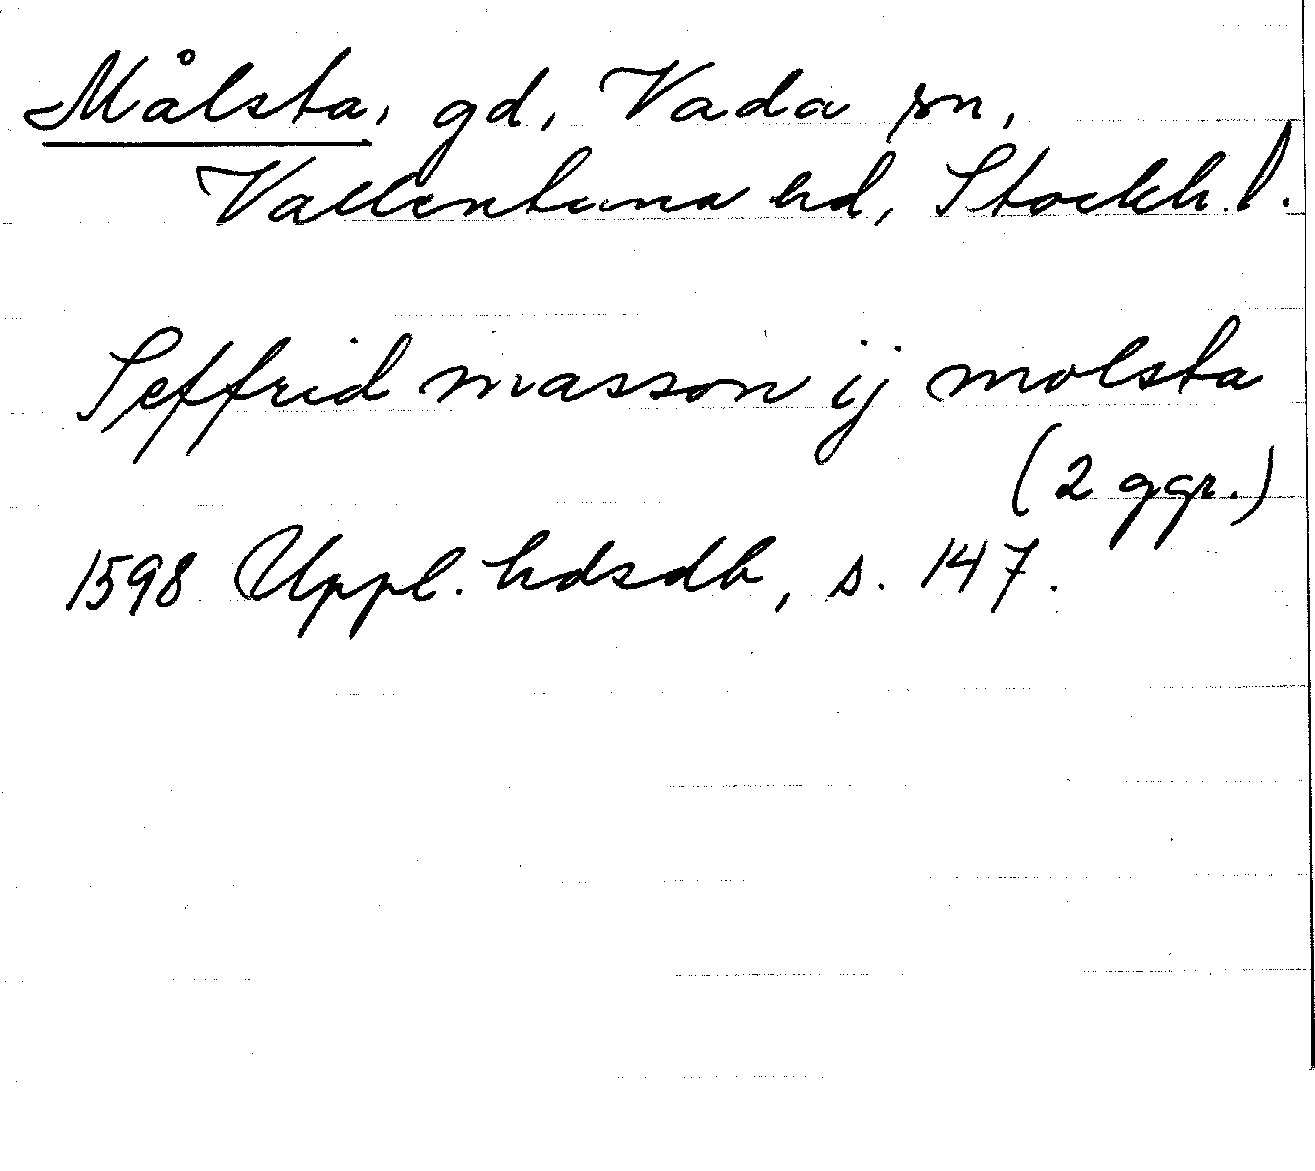 Målsta, gd, Vada sn,
Vallentuna hd, Stockh. l.
Seffrid masson ij molsta
(2 ggr.)
1598 Uppl. hdsdb, s. 147.